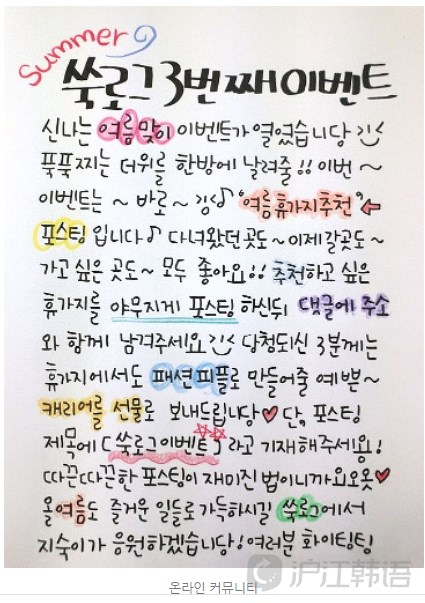 Summer
쑥로그 3번째 이벤트
신나는 여름맞이 이벤트가 열렸습니당
푹푹찌는 더위를 한방에 날려줄!! 이번 ~
이벤트는 ~ 바로 ~ "여름휴가지추천"
포스팅 입니다♪ 다녀왔던곳도~ 이제갈곳도~
가고 싶은 곳도~ 모두 좋아요!! 추천하고 싶은
휴가지를 야무지게 포스팅 하신뒤 댓글에 주소
와 함께 남겨주세요 당첨되신 3분께는
휴가지에서도 패션피플로 만들어줄 예쁜~
캐리어를 선물로 보내드립니당♥ 단, 포스팅
제목에 [쑥로그이벤트] 라고 기재해주세요!
따끈따끈한 포스팅이 재미진 법이니까요오옷♥
올여름도 즐거운 일들로 가득하시길 쑥로그에서
지숙이가 응원하겠습니당! 여러분 화이팅팅
沪江韩语
온라인 커뮤니티